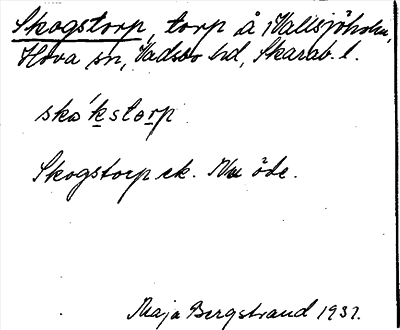 Skogstorp, torp å Vallsjöholm,
Hova sn, Vadsbo hd, Skarab. l.
skɷ´kstorp
Skogstorp ek. Nu öde.
Maja Bergstrand 1931.